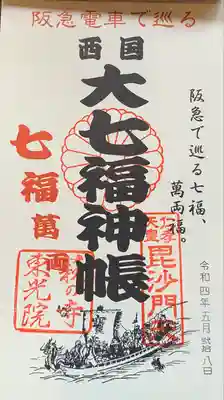 阪急電車で巡る
西国
大七福神帳
阪急で巡る七福、
萬両福。
七福萬両
毘沙門
令和四年五月拾八日
東光院